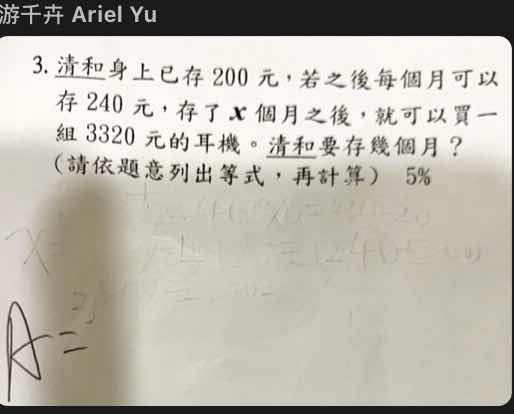 游千卉 Ariel Yu
3. 清和身上已存 200 元，若之後每個月可以
存 240 元，存了 x 個月之後，就可以買一
組 3320 元的耳機。清和要存幾個月？
（請依題意列出等式，再計算） 5%
A =